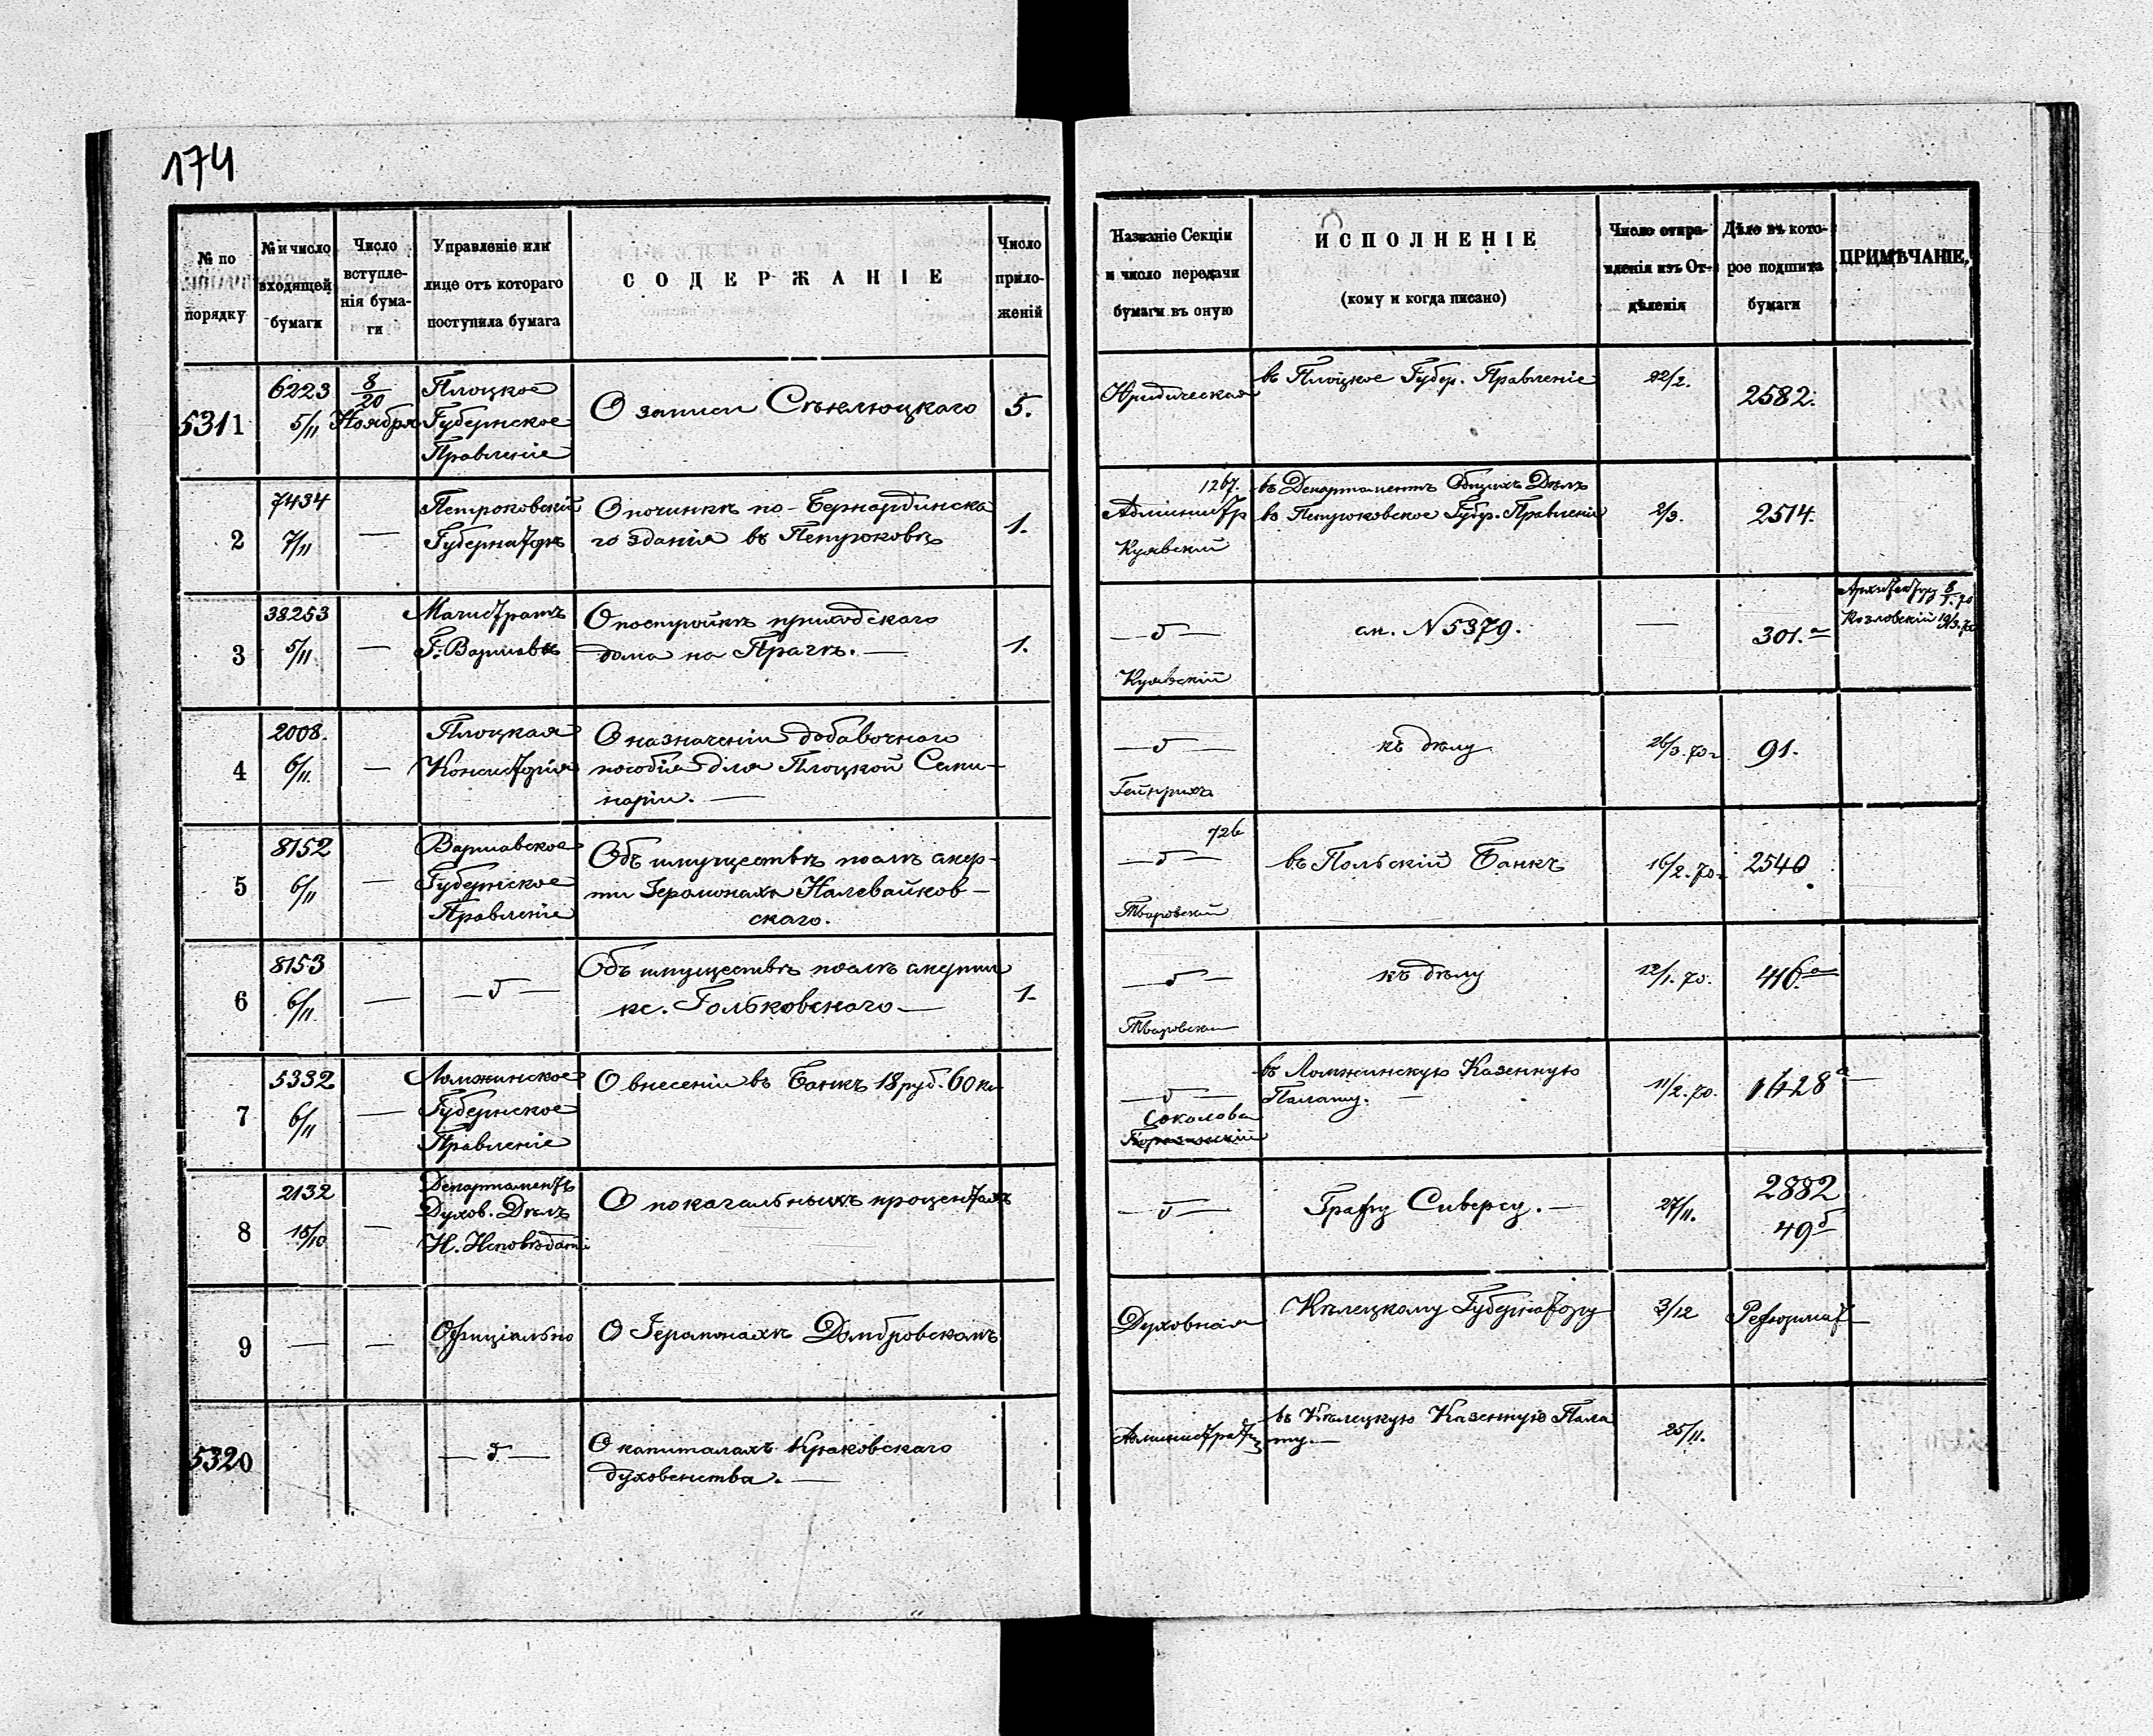 174
№ по порядку
№ и число входящей бумаги
Число вступле-
нія бума-
ги
Управленіе или
лице отъ котораго
поступила бумага
СОДЕРЖАНІЕ
Число
прило-
женій
Названіе Секціи
и число передачи
бумаги въ оную
ИСПОЛНЕНІЕ
(кому и когда писано)
Число отпра-
вленія изъ От-
дѣленія
Дѣло въ кото-
рое подшита
бумаги
ПРИМѢЧАНІЕ.
5311
6223
5/11
8/20
Ноября
Плоцкое
Губернское
Правленіе
О записи Сѣклюцкаго
5.
Юридическая
въ Плоцкое Губер. Правленіе
22/2.
2582.
2
7434
7/11
—
Петроковскій
Губернаторъ
О починкѣ по-Бернардинска
го зданія въ Петроковѣ
1.
1267.
Администр
Куявскій
въ Департаментъ Общихъ Дѣлъ
въ Петроковское Губер. Правленіе
2/3.
2514.
3
38253
5/11
—
Магистратъ
Г. Варшавы
О постройкѣ приходскаго
дома на Прагѣ. —
1.
— д —
Куявскій
сл. № 5379.
—
301.а
Архитектору 8/1.70
Козловскій 10/3.70
4
2008.
6/11.
—
Плоцкая
Консисторія
О назначеніи добавочнаго
пособія для Плоцкой Семи-
наріи. —
— д —
Гейнрихъ
къ дѣлу
26/3.70г
91.
5
8152
6/11
—
Варшавское
Губернское
Правленіе
Объ имуществѣ послѣ смер-
ти Іеромонаха Налевайков-
скаго.
726
— д —
Тваровскій
въ Польскій Банкъ
16/2.70.
2540
6
8153
6/11
—
— д —
Объ имуществѣ послѣ смерти
кс. Голковскаго —
1.
— д —
къ дѣлу
12/1.70.
416.а
7
5332
6/11
—
Ломжинское
Губернское
Правленіе
О внесеніи въ Банкъ 18 руб. 60 ко
— д —
Соколова
въ Ломжинскую Казенную
Палату. —
11/2.70.
1428а
8
2132
15/10
—
Департаментъ
Духов. Дѣлъ
И. Исповѣданій
О покагальныхъ процентахъ
— д —
Графу Сиверсу. —
27/11.
2882
49б
9
—
—
Офиціально
О Іеромонахѣ Домбровскомъ
Духовная
Кѣлецкому Губернатору
3/12
Реформат
5320
— д —
О капиталахъ Краковскаго
духовенства. —
Администрат
въ Кѣлецкую Казенную Пала
ту. —
25/11.